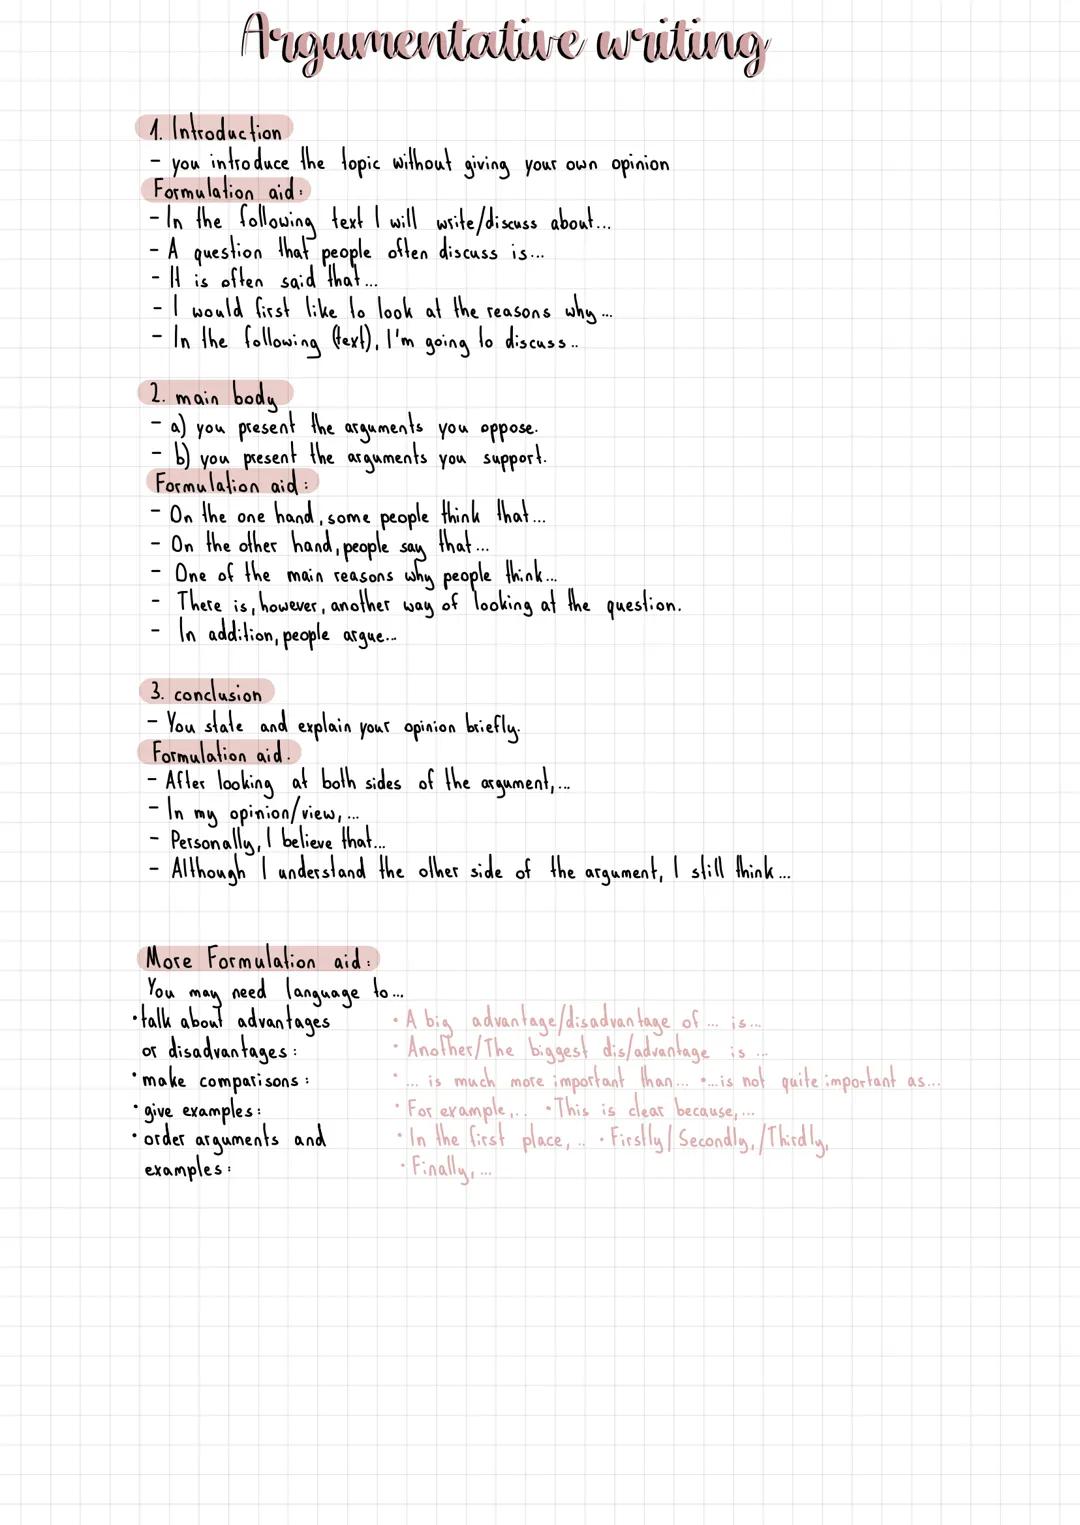 Argumentative writing
1. Introduction
- you introduce the topic without giving your own opinion
Formulation aid:
- In the following text I will write/discuss about...
- A question that people often discuss is...
- It is often said that...
- I would first like to look at the reasons why...
- In the following (text), I'm going to discuss..
2. main body
- a) you present the arguments you oppose.
- b) you present the arguments you support.
Formulation aid:
- On the one hand, some people think that...
- On the other hand, people say that...
- One of the main reasons why people think...
- There is, however, another way of looking at the question.
- In addition, people argue...
3. conclusion
- You state and explain your opinion briefly.
Formulation aid.
- After looking at both sides of the argument,...
- In my opinion/view,...
- Personally, I believe that...
- Although I understand the other side of the argument, I still think...
More Formulation aid:
You may need language to...
• talk about advantages • A big advantage/disadvantage of ... is...
or disadvantages: • Another/The biggest dis/advantage is ...
• make comparisons: • ... is much more important than... •...is not quite important as...
• give examples: • For example,.. • This is clear because,...
• order arguments and • In the first place, .. • Firstly/Secondly,/Thirdly,
examples: • Finally,...